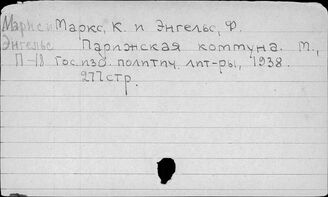 Маркс и Маркс, К. и Энгельс, Ф.
Энгельс Парижская коммуна. М.,
П-18 Гос. изд. политич. лит-ры, 1938.
277 стр.